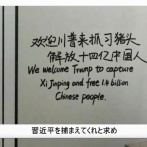 欢迎川普来抓习猪头
解放十四亿中国人
We welcome Trump to capture
Xi Jinping and free 1.4 billion
Chinese people.
習近平を捕まえてくれと求め